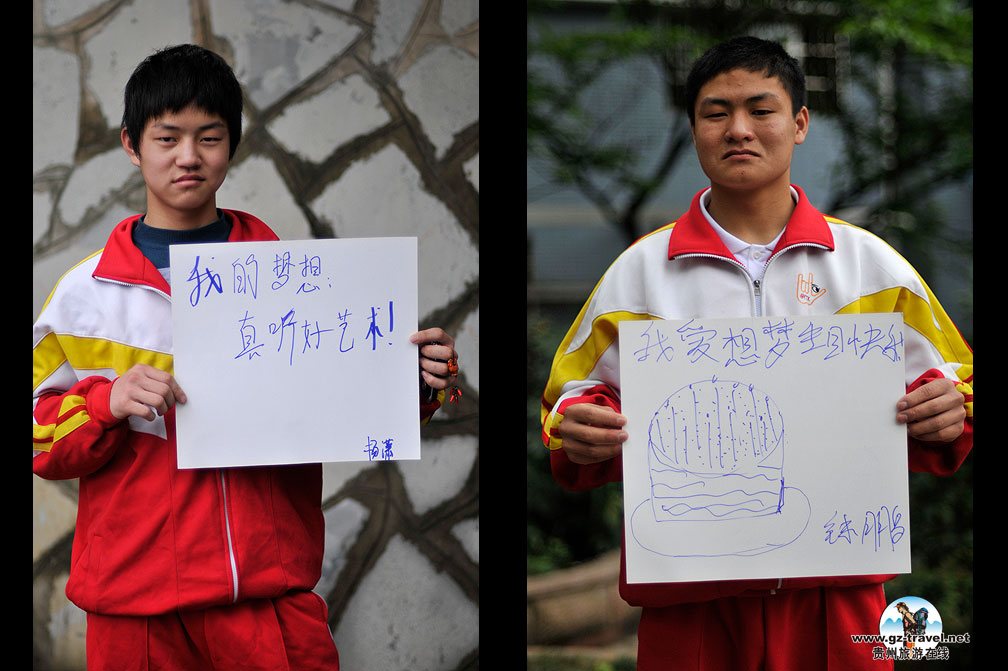 我的梦想：
真听好艺术！
杨潇
我爱想梦生日快乐
明昌
www.gz-travel.net
贵州旅游在线